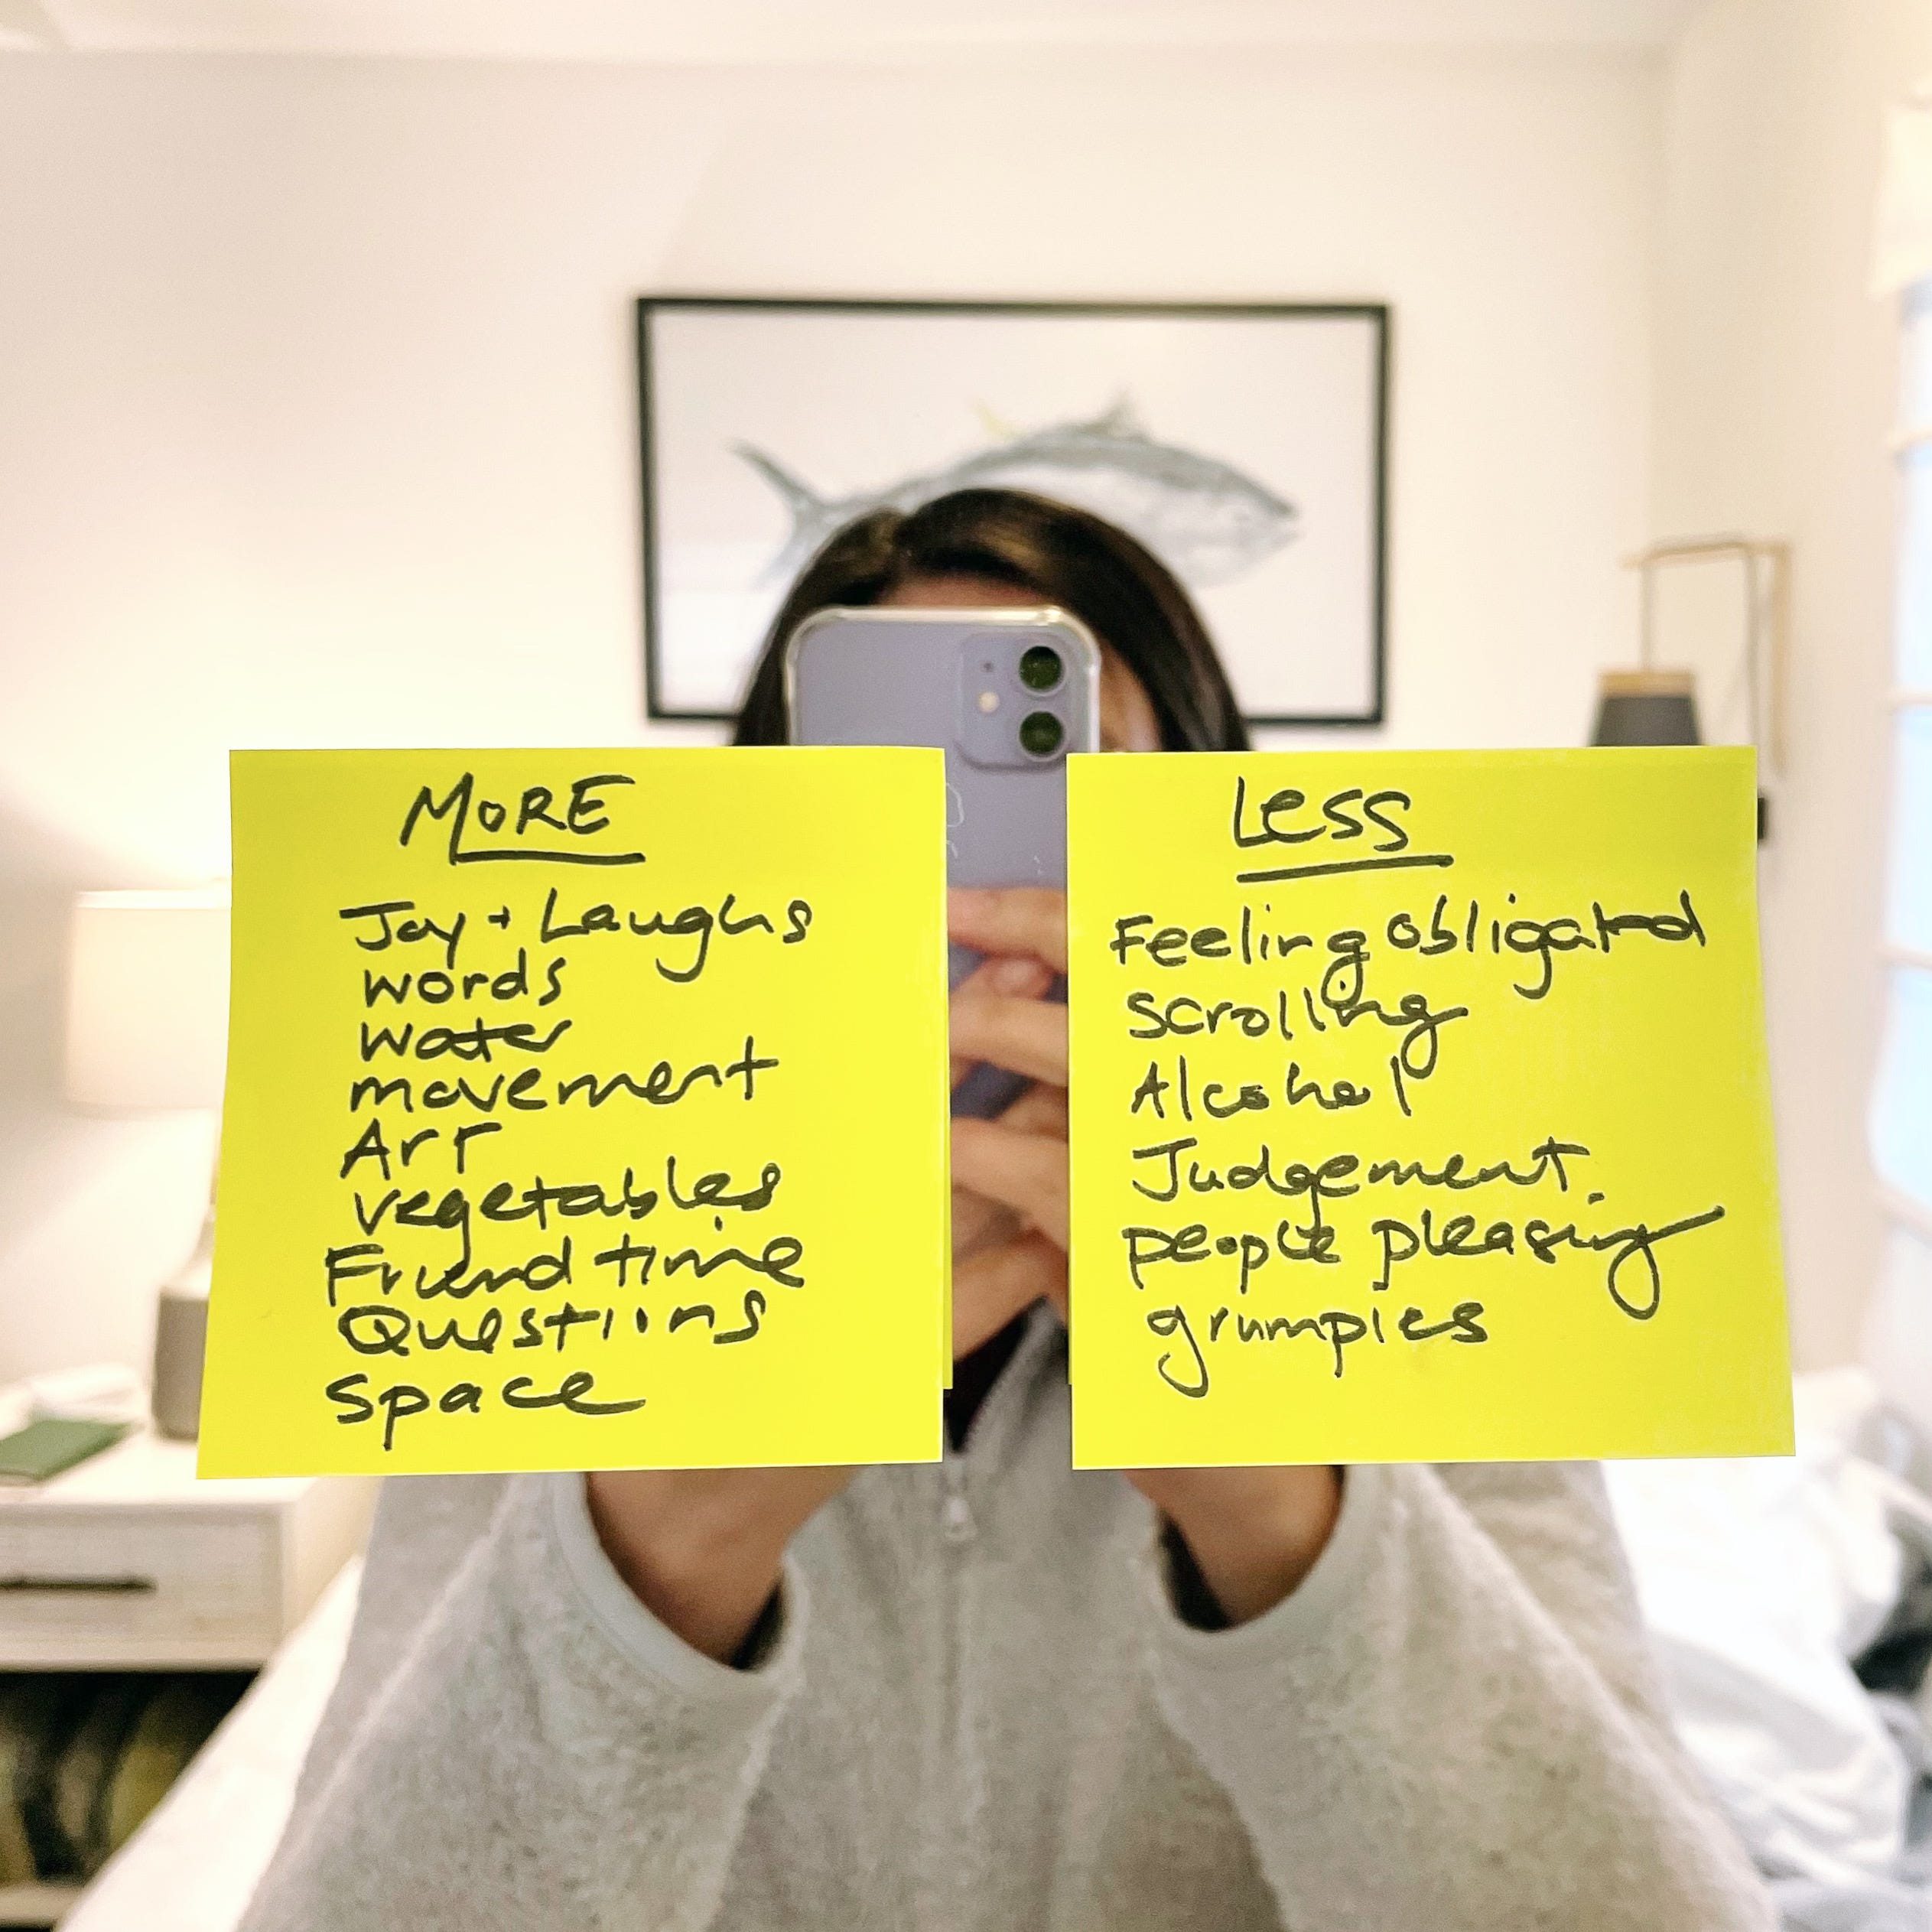 MORE
Joy + Laughs
words
water
movement
Art
vegetables
Friend time
Questions
space
Less
Feeling obligated
scrolling
Alcohol
Judgement
people pleasing
grumpies